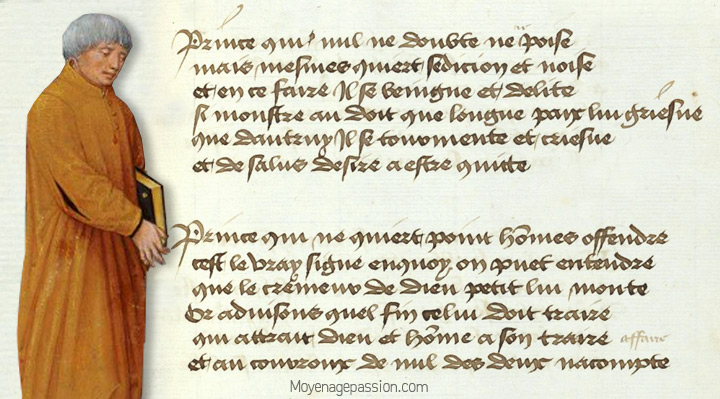 Prince qui nul ne doubte në poise
mais mesmes quiert sedicion et noise
et en ce faire Il se beingne et delite
si monstre au doit que longue paix lui griesue
que dautruy Il se tourmente et criesue
et de salus desire a estre quitte
Prince qui ne quiert point hōmes offendre
cest le vray signe enquoy on puet entendre
que le cremeur de dieu petit lui monte
Or aduisons quel fin celui doit traire
qui attrait dieu et hōme a son traire affaire
et au couroux de nul des deux nacompte
Moyenagepassion.com